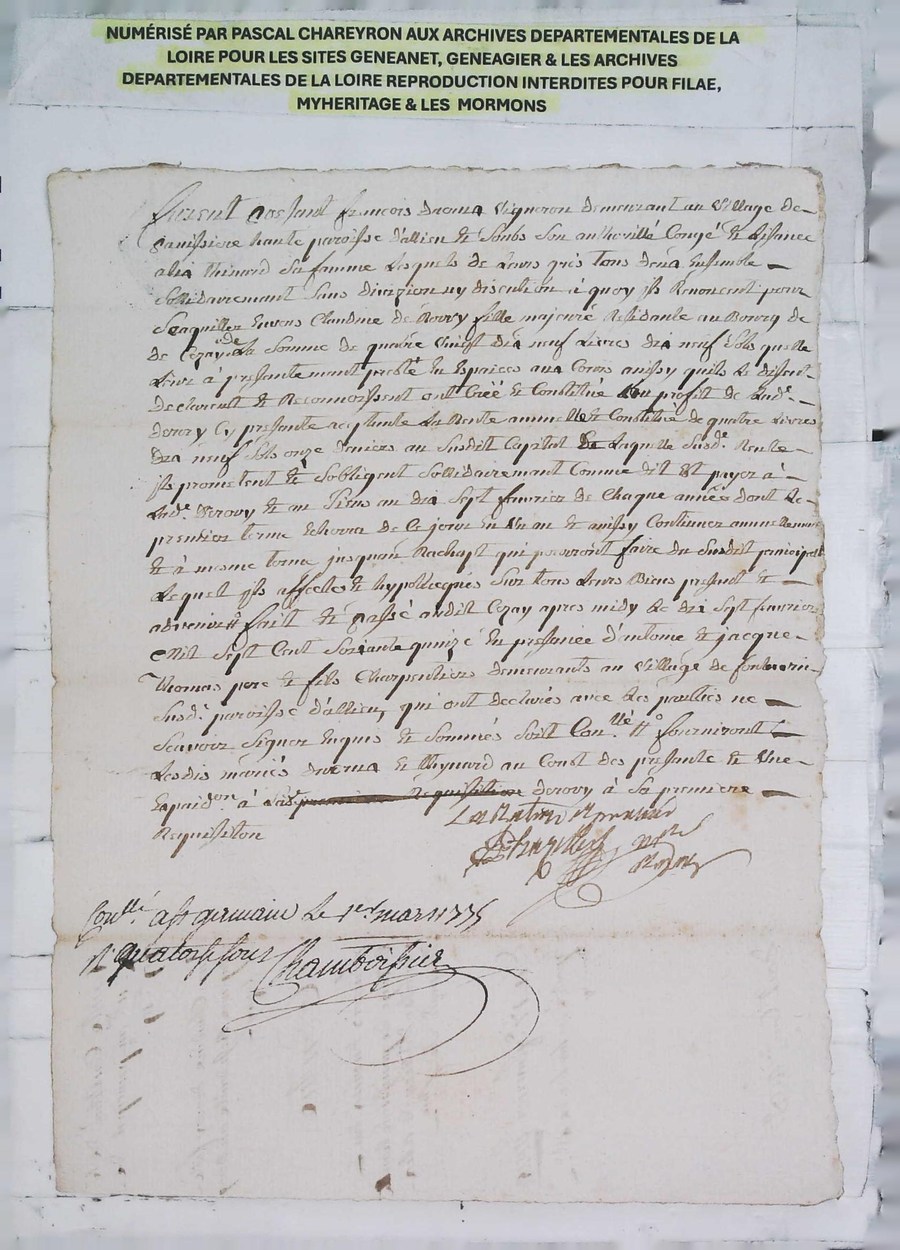 NUMÉRISÉ PAR PASCAL CHAREYRON AUX ARCHIVES DEPARTEMENTALES DE LA
LOIRE POUR LES SITES GENEANET, GENEAGIER & LES ARCHIVES
DEPARTEMENTALES DE LA LOIRE REPRODUCTION INTERDITES POUR FILAE,
MYHERITAGE & LES MORMONS
furent present françois Vigneron demeurant au Village de
haute paroisse d'allieu & Soubs Son authorité Congé & Lisance
thinard Sa famme Lesquels de Leurs grés tous deux Ensemble
Sollidairemant Sans divizion ny discution a quoy jls Renoncent pour
Seaquiller Envers Claudine de Rovry fille majeure Residante au Bourg de
de Cezay de La Somme de quatre Vingt dix neuf Livres dix neuf Sols quelle
Leur à presantemant preblé En Espaices aux Cours ainssy quils Le dissent
declarent & Reconnoissent ont Créé & Constitué au profit de Lade
derory Cy presante aceptante La Rente annuelle & Constituée de quatre Livres
dix neuf Sols onze deniers au Susdit Capital Laquelle Susde Rente
jls prometent & Sobligent Sollidairemant Comme dit Est payer à
Lade derovy & au Siens au dix Sept feuvrier de Chaque année dont Le
premier terme Echerra de Ce jour En Un an & ainssy Continuer annuellemant
& à mesme terme jusquau Rachapt qui pourront faire du Susdit principal
Lequel jls affecte & hypothecqués Sur tous Leurs Biens present &
advenir fait & passé audit Cezay apres midy Le dix Sept feuvrier
Mil Sept Cent Soixante quinzé En presance d'antoine & jacque
Thomas pere & fils Charpentiers demeurants au Village de
Susde paroisse d'allieu, qui ont declarés avec Les parties ne
Scavoir Signer Enquis & Sommés Soit Conllé fourniront
Lesdis mariés & thynard au Const des presante & Une
Expaidon à Lade premiere requisition derovy à Sa premiere
Requisiton
Conllé a st germain Le 1er mars 1775
quatorse sous